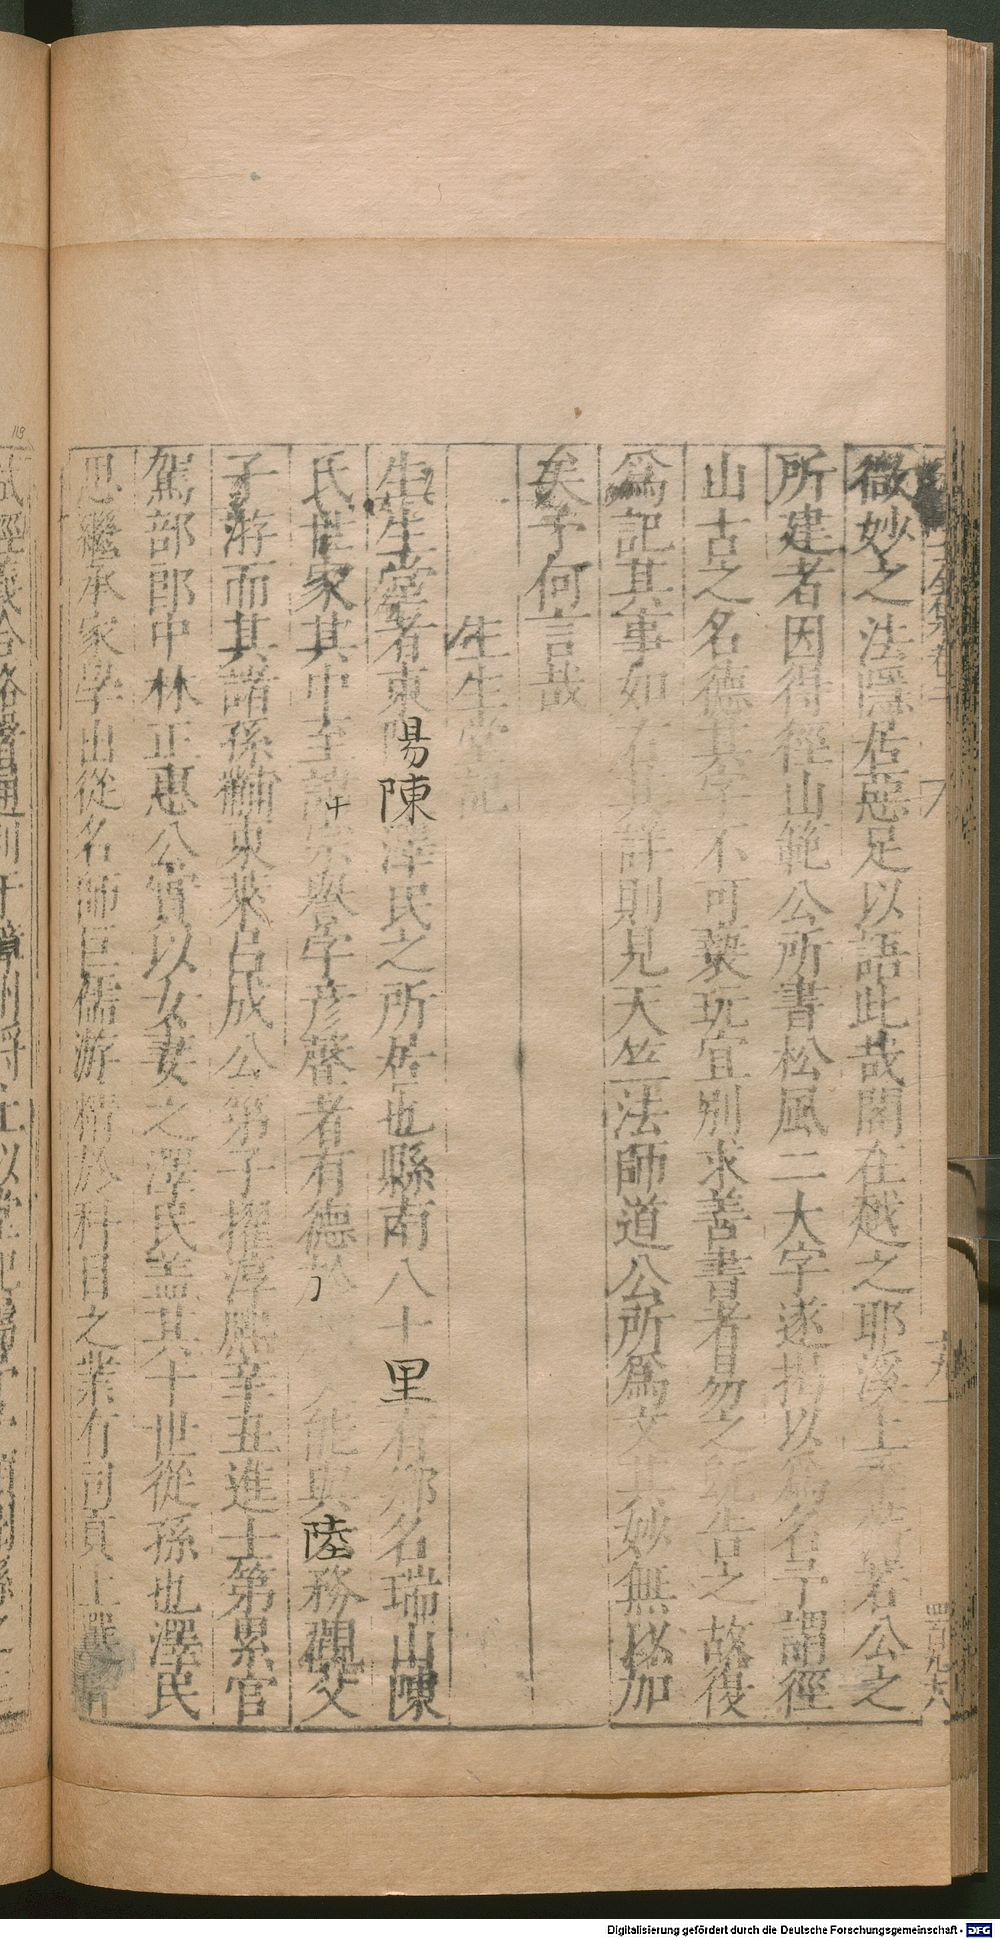 微妙之法隱居惡足以語此哉閣在越之耶溪上主者名公之
所建者因得徑山範公所書松風二大字遂揭以爲名予謂徑
山古之名德其字不可褻玩宜別求善書者易之既告之故復
爲記其事如右詳則見天竺法師道公所爲文其妙無以加
矣予何言哉
生生堂記
生生堂者東陽陳澤民之所居也縣南八十里有鄉名瑞山陳
氏世家其中至諱宗譽字彥聲者有德於人能與陸務觀父
子游而其諸孫黼東萊呂成公弟子擢淳熙辛丑進士第累官
駕部郎中林正惠公實以女妻之澤民蓋其十世從孫也澤民
思繼承家學出從名師巨儒游精於科目之業有司貢上選
四百九十八
119
Digitalisierung gefördert durch die Deutsche Forschungsgemeinschaft - DFG